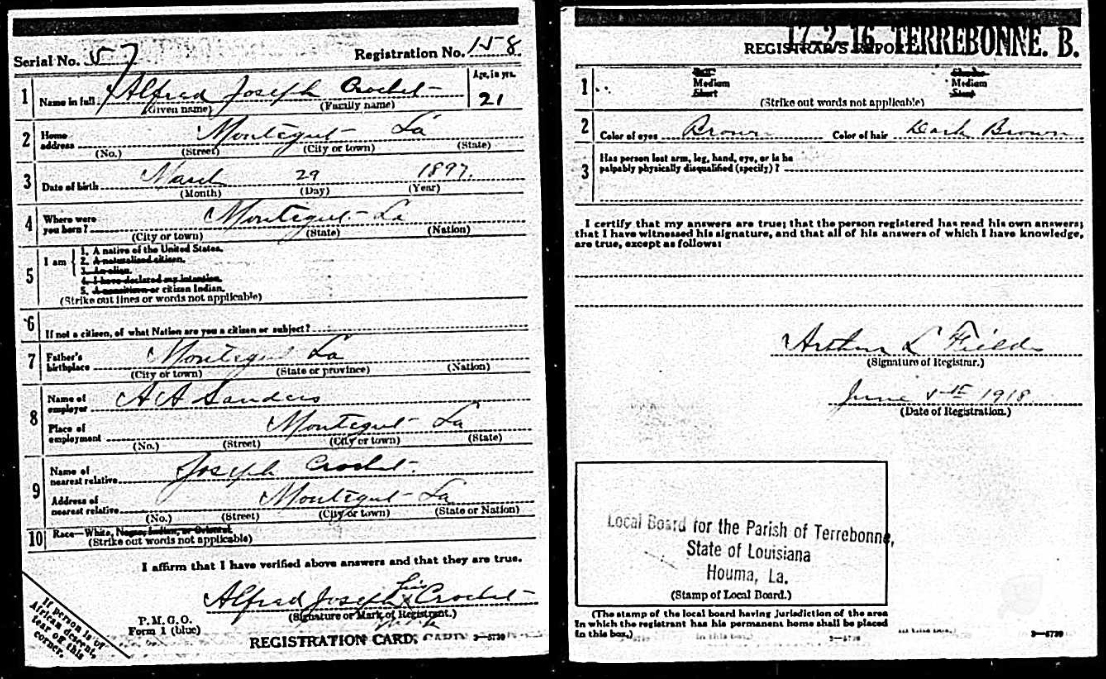 Serial No. 57 Registration No. 158
1 Name in full Alfred Joseph Crochet Age, in yrs. 21
(Given name) (Family name)
2 Home address Montegut La
(No.) (Street) (City or town) (State)
3 Date of birth March 29 1897
(Month) (Day) (Year)
4 Where were you born? Montegut La
(City or town) (State) (Nation)
5 I am
1. A native of the United States.
2. A naturalized citizen.
3. An alien.
4. I have declared my intention.
5. A noncitizen or citizen Indian.
(Strike out lines or words not applicable)
6 If not a citizen, of what Nation are you a citizen or subject?
7 Father's birthplace Montegut La
(City or town) (State or province) (Nation)
8 Name of employer A A Sanders
Place of employment Montegut La
(No.) (Street) (City or town) (State)
9 Name of nearest relative Joseph Crochet
Address of nearest relative Montegut La
(No.) (Street) (City or town) (State or Nation)
10 Race—White, Negro, Indian, or Oriental
(Strike out words not applicable)
I affirm that I have verified above answers and that they are true.
Alfred Joseph his x Crochet
(Signature or Mark of Registrant.)
P. M. G. O.
Form 1 (blue)
REGISTRATION CARD. 3—5739
If person is of African descent, tear off this corner.
17-2-16 TERREBONNE. B.
REGISTRAR'S REPORT
1 Tall Medium Short Slender Medium Stout
(Strike out words not applicable)
2 Color of eyes Brown Color of hair Dark Brown
3 Has person lost arm, leg, hand, eye, or is he
palpably physically disqualified (specify)?
I certify that my answers are true; that the person registered has read his own answers;
that I have witnessed his signature, and that all of his answers of which I have knowledge,
are true, except as follows:
Arthur L Fields
(Signature of Registrar.)
June 1918
(Date of Registration.)
Local Board for the Parish of Terrebonne,
State of Louisiana
Houma, La.
(Stamp of Local Board.)
(The stamp of the local board having jurisdiction of the area
in which the registrant has his permanent home shall be placed
in this box.)
3—5739